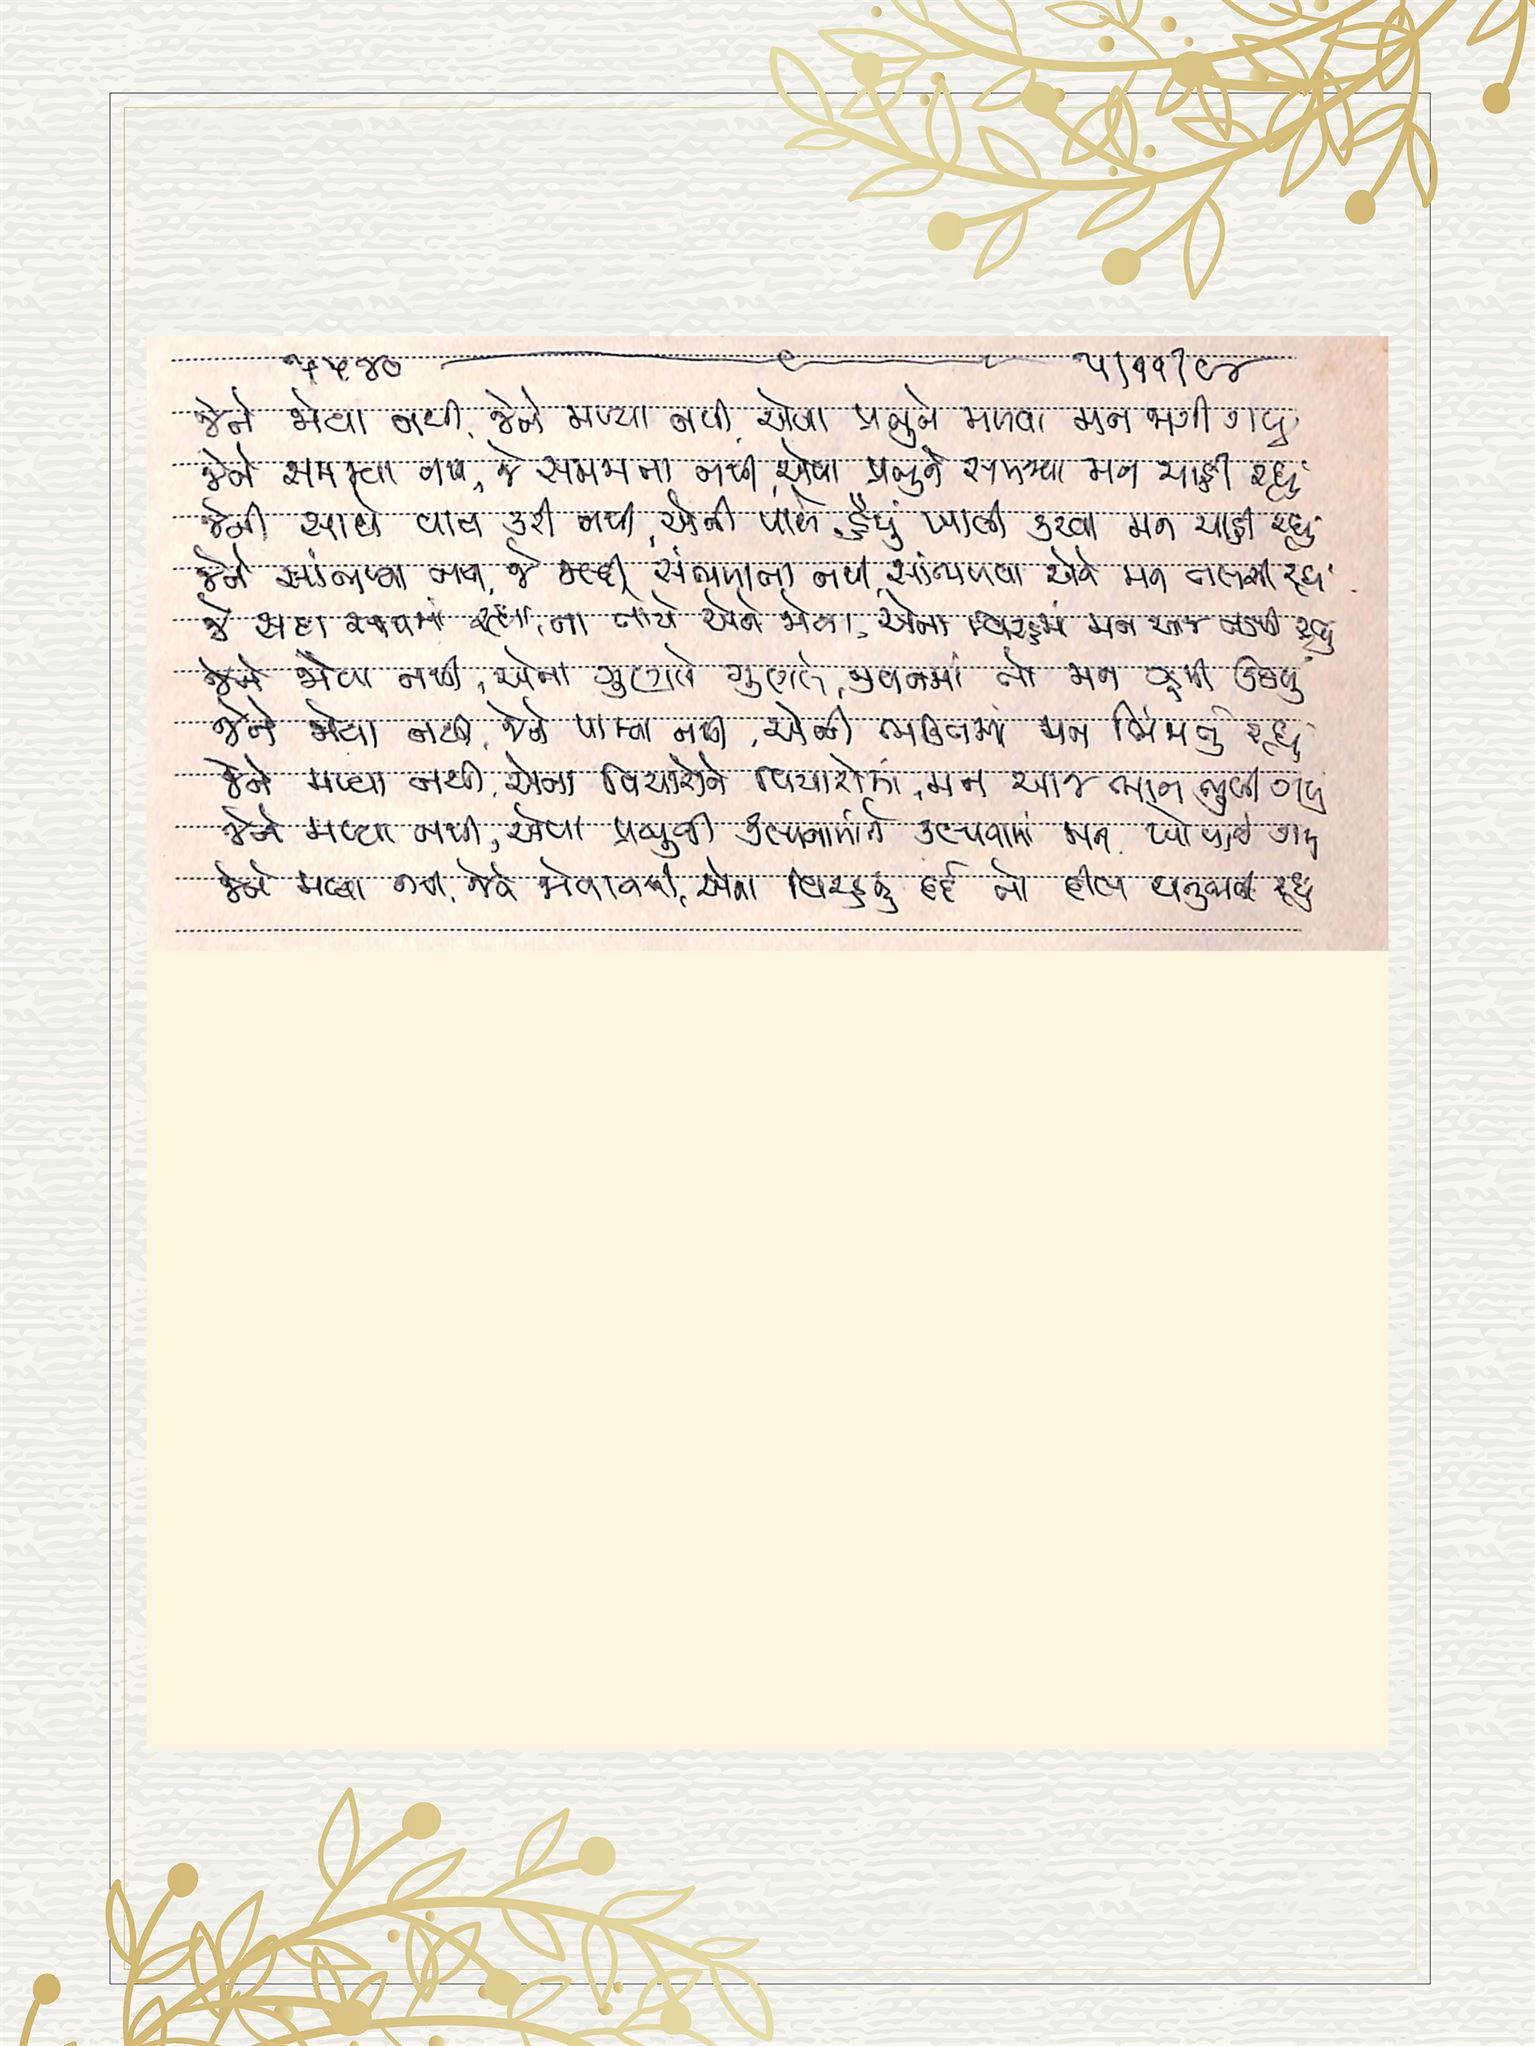 ૫૫૪૦ ૫/૧૧/૯૪
જેને જોયા નથી, જેને મળ્યા નથી, એવા પ્રભુને મળવા મન ઝંખી ગયું
જેને સમજ્યા નથી, જે સમજાતા નથી, એવા પ્રભુને સમજવા મન ચાહી રહ્યું
જેની સાથે વાત કરી નથી, એની પાસે, હૈયું ખાલી કરવા મન ચાહી રહ્યું
જેને સાંભળ્યા નથી, જે જલ્દી સંભળાતા નથી, સાંભળવા એને મન તલસી રહ્યું
જે સદા રહ્યા, ના તોયે એને જોયા, એના વિરહમાં મન આજ રહ્યું
જેને જોયા નથી, એના ગુણોને ગુણોને, મનનમાં તો મન કૂદી ઊઠયું
જેને જોયા નથી, જેને પામ્યા નથી, એની ભક્તિમાં મન ભીંજાતું રહ્યું
જેને મળ્યા નથી, એના વિચારોને વિચારોમાં, મન આજ ભાન ભૂલી ગયું
જેને મળ્યા નથી, એવા પ્રભુની કલ્પનાને કલ્પનામાં મન ગયું
જેને મળ્યા નથી, જેને જોયા નથી, એના વિરહનું દર્દ તો દીલ અનુભવી રહ્યું